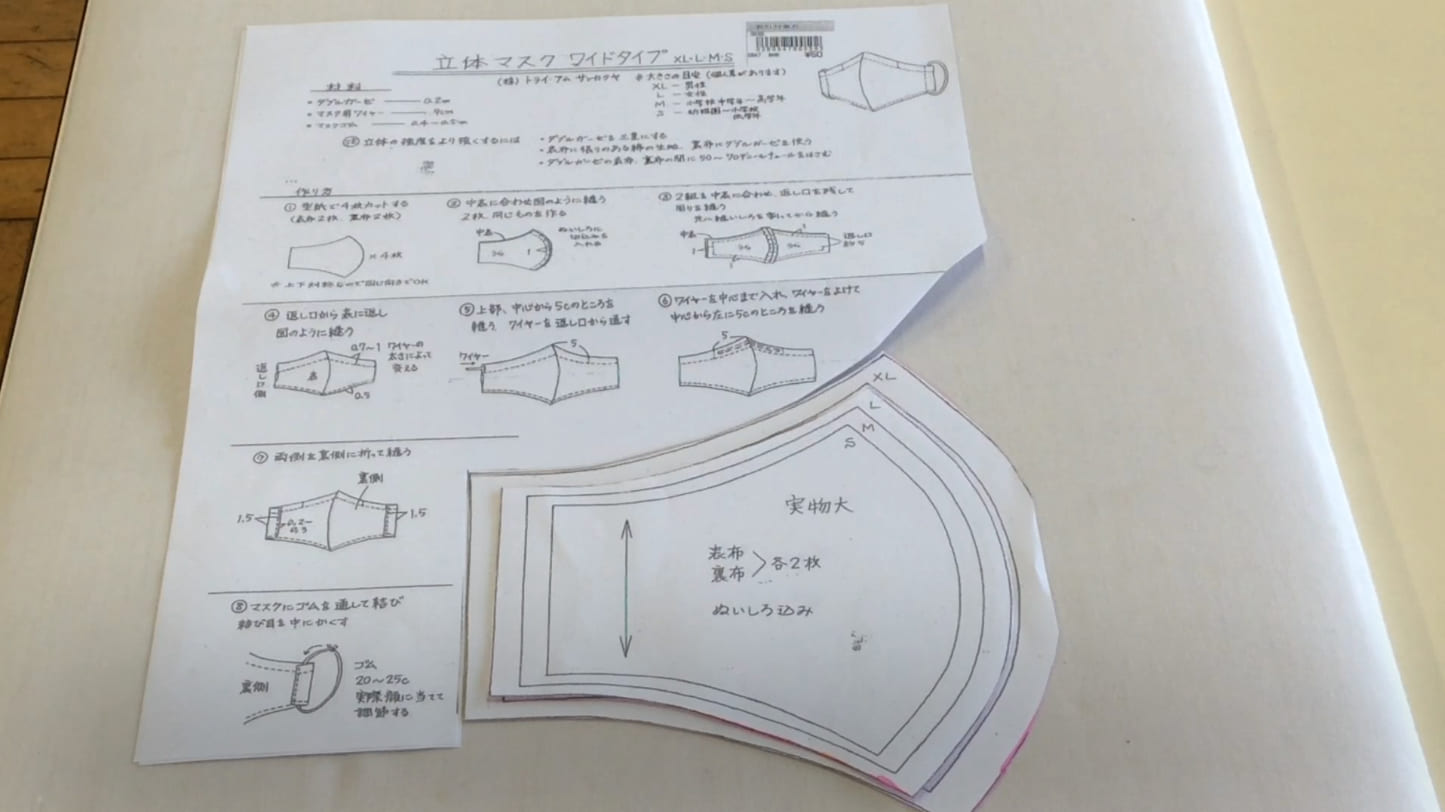 立体マスク ワイドタイプ XL・L・M・S
(株)トライ・アム サンカクヤ
※大きさの目安(個人差があります)
XL − 男性
L − 女性
M − 小学校中学年〜高学年
S − 幼稚園〜小学校
低学年
¥50
材料
・ダブルガーゼ 0.2m
・マスク用ワイヤー
・マスクゴム 0.4〜0.5m
立体の強度をより強くするには
・ダブルガーゼを三重にする
・表布に張りのある綿の生地、裏布にダブルガーゼを使う
・ダブルガーゼの表布、裏布の間に50〜70デニールチュールをはさむ
作り方
① 型紙で4枚カットする
(表布2枚、裏布2枚)
×4枚
※上下対称なので同じ向きでOK
② 中表に合わせ図のように縫う
2枚、同じものを作る
中表
ぬいしろに
切込みを
入れる
1
③ 2組を中表に合わせ、返し口を残して
周りを縫う
先に縫いしろを割ってから縫う
中表
1
1
1
返し口
④ 返し口から表に返し
図のように縫う
返し口側
表
0.7〜1
ワイヤーの
太さによって
変える
0.5
⑤ 上部、中心から5cのところを
縫う、ワイヤーを返し口から通す
ワイヤー
5
⑥ ワイヤーを中心まで入れ、ワイヤーをよけて
中心から左に5cのところを縫う
5
⑦ 両側を裏側に折って縫う
裏側
1.5
0.2〜
0.3
1.5
⑧ マスクにゴムを通して結び
結び目を中にかくす
裏側
ゴム
20〜25c
実際顔に当てて
調節する
XL
L
M
S
実物大
表布
裏布
各2枚
ぬいしろ込み